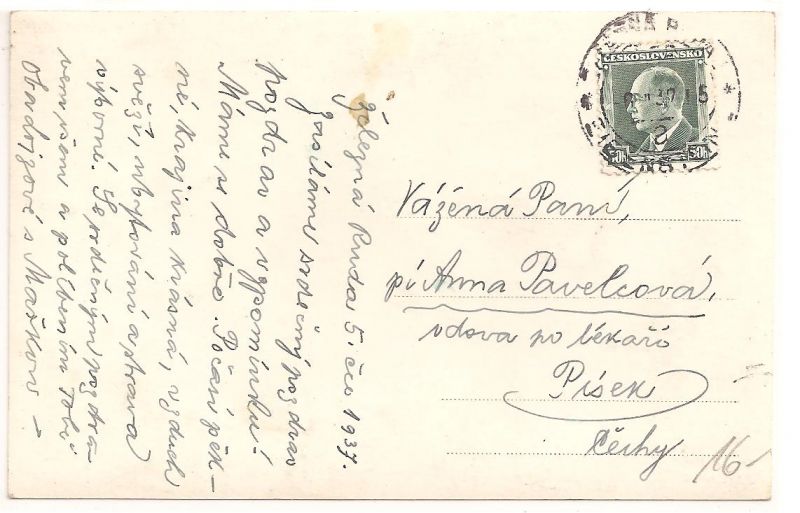 Železná Ruda 5. čce 1937.
Zasíláme srdečný pozdrav
pozdrav a vzpomínku!
Máme se dobře. Počasí pěk-
né, krajina krásná, vzduch
svěží, ubytování a strava
výborné. Se srdečným pozdra
vem jsem a políbením Tobě
s Mařkou –
ČESKOSLOVENSKO
50h 50h
Vážená Paní,
pí Anna Pavelcová,
vdova po lékaři
Písek
Čechy
16-